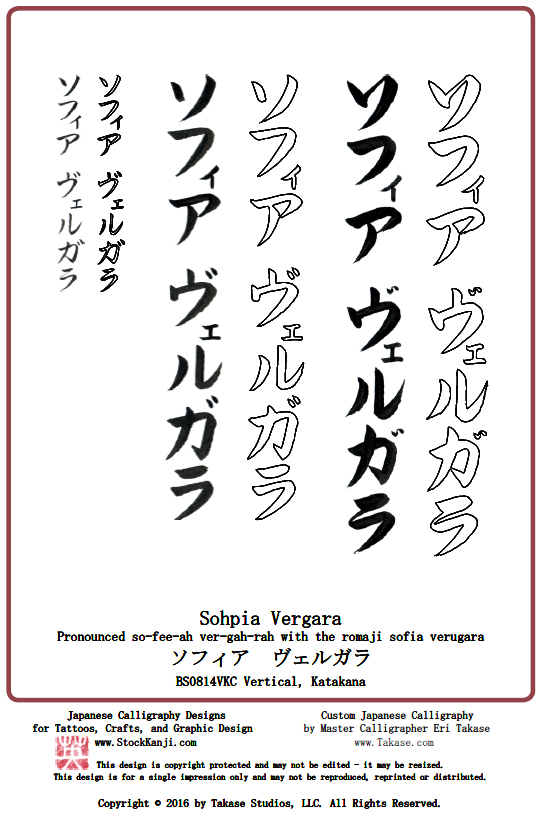 ソフィア ヴェルガラ
ソフィア ヴェルガラ
ソフィア ヴェルガラ
ソフィア ヴェルガラ
ソフィア ヴェルガラ
ソフィア ヴェルガラ
Sohpia Vergara
Pronounced so-fee-ah ver-gah-rah with the romaji sofia verugara
ソフィア　ヴェルガラ
BS0814VKC Vertical, Katakana
Japanese Calligraphy Designs
for Tattoos, Crafts, and Graphic Design
www.StockKanji.com
Custom Japanese Calligraphy
by Master Calligrapher Eri Takase
www.Takase.com
This design is copyright protected and may not be edited - it may be resized.
This design is for a single impression only and may not be reproduced, reprinted or distributed.
Copyright © 2016 by Takase Studios, LLC. All Rights Reserved.